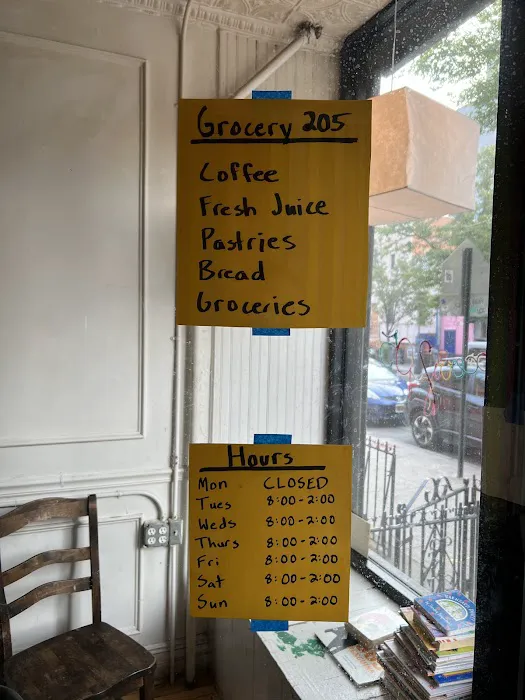 Grocery 205
Coffee
Fresh Juice
Pastries
Bread
Groceries
Hours
Mon CLOSED
Tues 8:00-2:00
Weds 8:00-2:00
Thurs 8:00-2:00
Fri 8:00-2:00
Sat 8:00-2:00
Sun 8:00-2:00